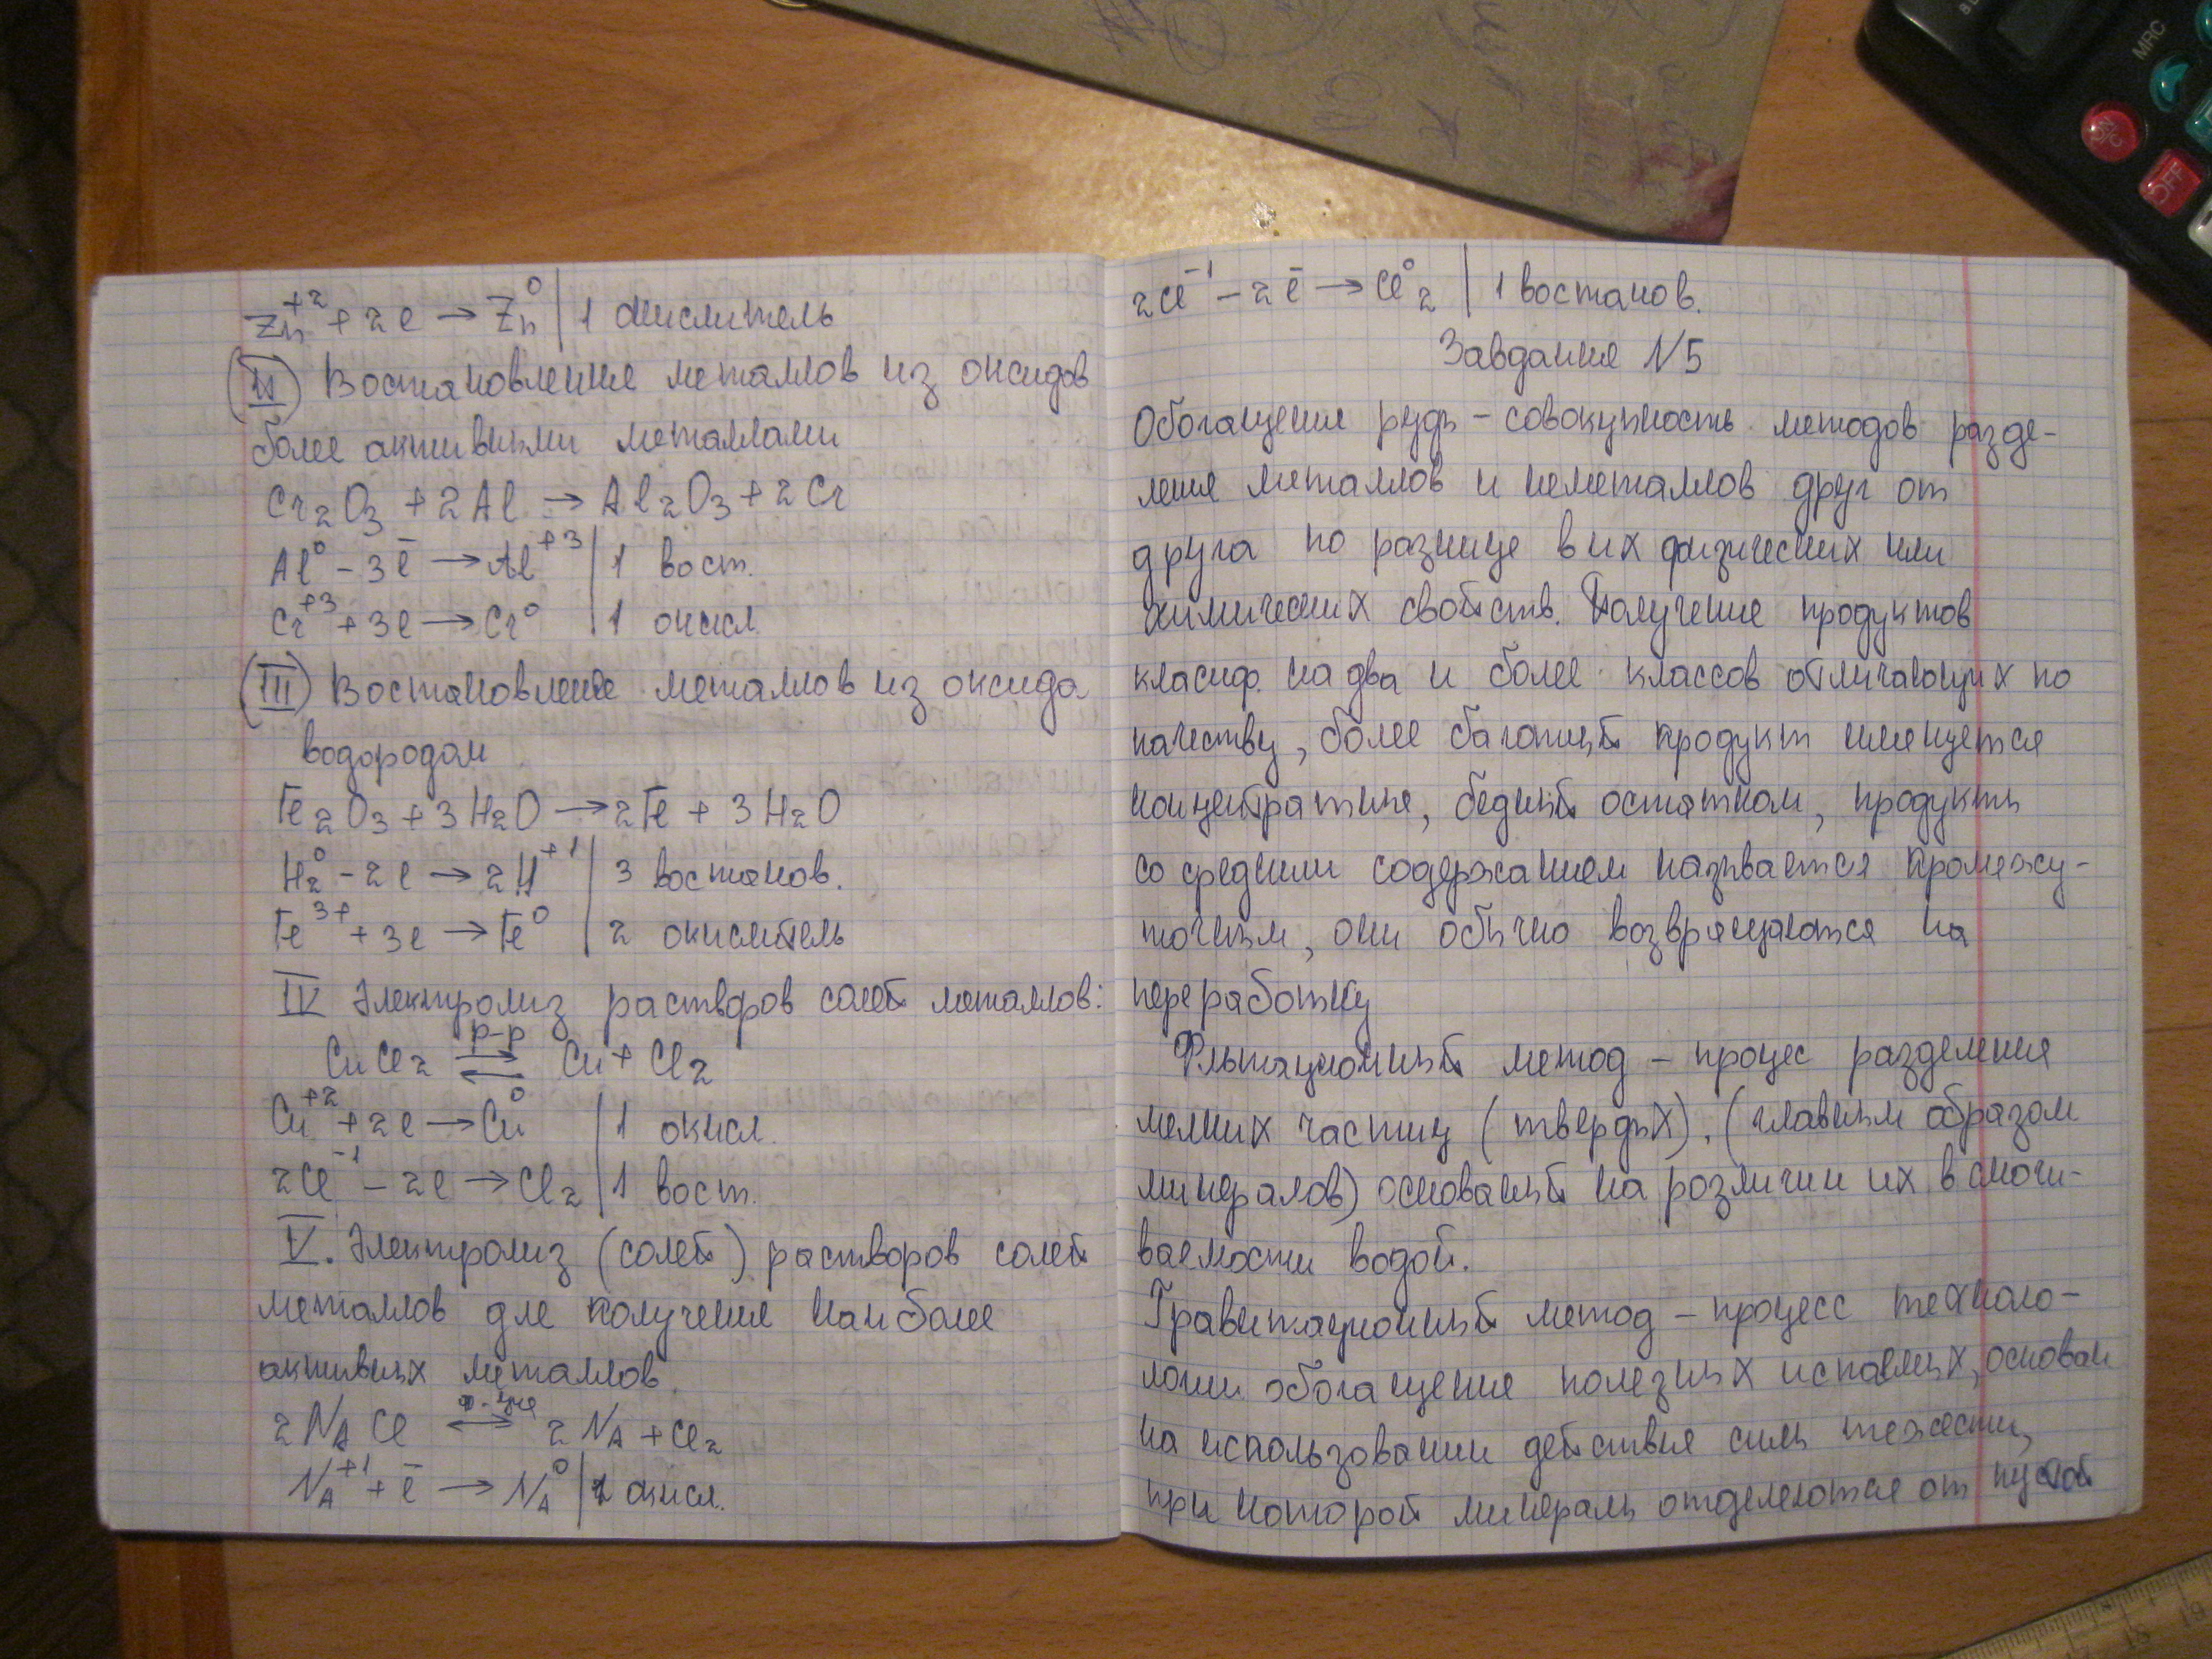 Zn⁺² + 2e → Zn⁰ | 1 окислитель
(II) Востановление металлов из оксидов
более активными металлами
Cr₂O₃ + 2Al → Al₂O₃ + 2Cr
Al⁰ - 3ē → Al⁺³ | 1 вост.
Cr⁺³ + 3e → Cr⁰ | 1 окисл.
(III) Востановление металлов из оксида
водородом
Fe₂O₃ + 3H₂O → 2Fe + 3H₂O
H₂⁰ - 2e → 2H⁺¹ | 3 востанов.
Fe³⁺ + 3e → Fe⁰ | 2 окислитель
IV Электролиз растворов солей металлов:
р-р
CuCl₂ ⇄ Cu + Cl₂
Cu⁺² + 2e → Cu⁰ | 1 окисл.
2Cl⁻¹ - 2e → Cl₂ | 1 вост.
V. Электролиз (солей) растворов солей
металлов для получения наиболее
активных металлов.
2NaCl ⟷ 2Na + Cl₂
Na⁺¹ + ē → Na⁰ | 2 окисл.
2Cl⁻¹ - 2ē → Cl⁰₂ | 1 востанов.
Завдання N5
Обогащение руды - совокупность методов разде-
ления металлов и неметаллов друг от
друга по разнице в их физических или
химических свойств. Получение продуктов
класиф. на два и более классов отличающих по
качеству, более богатый продукт именуется
концентратные, бедный остатком, продукты
со средним содержанием называется промежу-
точным, они обычно возвращаются на
переработку
Флотационный метод - процес разделения
мелких частиц (твердых), (главным образом
минералов) основаный на различии их в смочи-
ваемости водой.
Гравитационный метод - процесс техноло-
логии обогащения полезных испаемых, основан
на использовании действия силы тяжести,
при которой минералы отделяются от пустой
MRC
ON/C
OFF